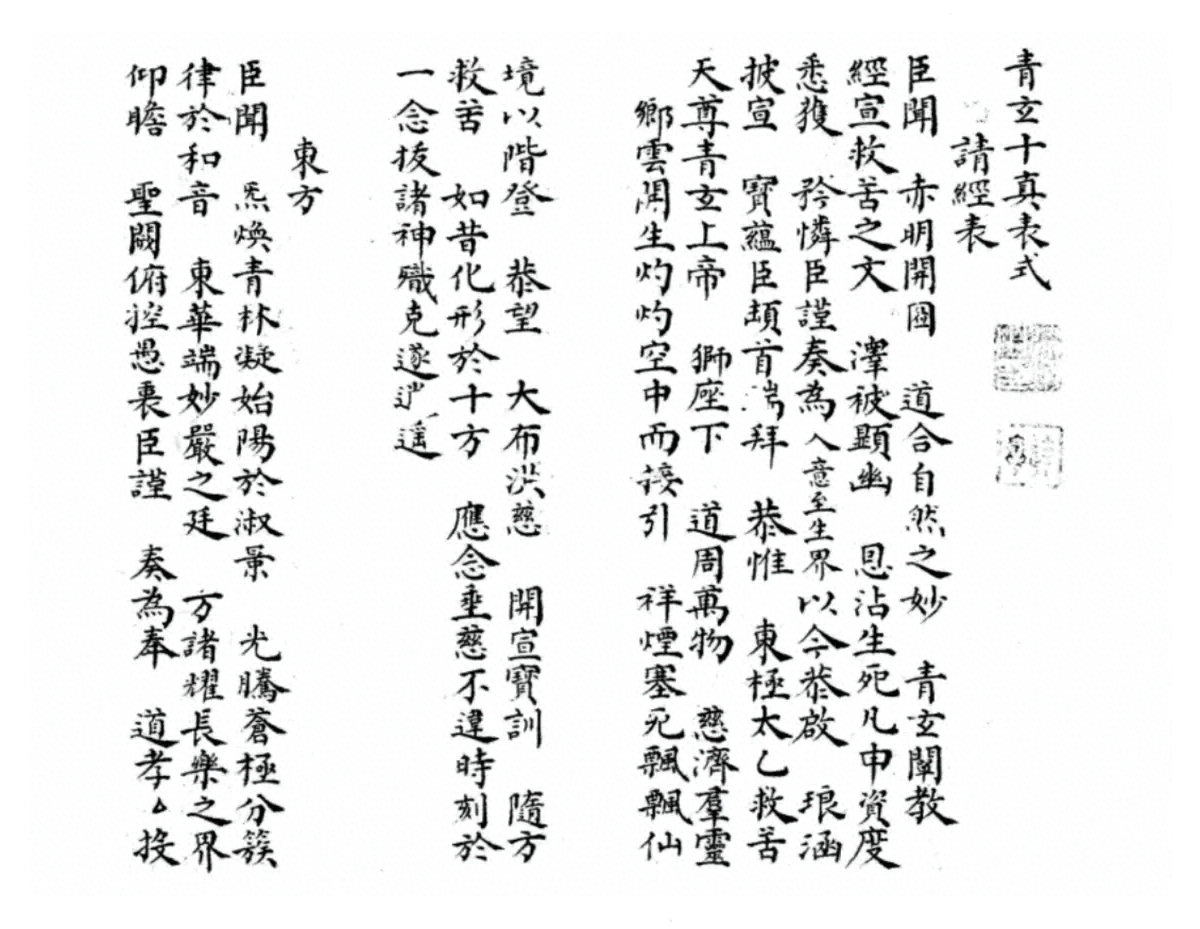 青玄十真表式
請經表
臣聞　赤明開圖　道合自然之妙　青玄闡教
經宣救苦之文　澤被顯幽　恩沾生死凡申資度
悉獲　矜憐臣謹奏為入意至生界以今恭啟　琅涵
披宣　寶蘊臣頓首端拜　恭惟　東極太乙救苦
天尊青玄上帝　獅座下　道周萬物　慈濟羣靈
鄉雲開生灼灼空中而接引　祥煙塞死飄飄仙
境以階登　恭望　大布洪慈　開宣寶訓　隨方
救苦　如昔化形於十方　應念垂慈不違時刻於
一念拔諸神職克遂逍遥
東方
臣聞　炁煥青林凝始陽於淑景　光騰蒼極分簇
律於和音　東華端妙嚴之廷　方諸耀長樂之界
仰瞻　聖闕俯控愚衷臣謹　奏為奉　道孝△投